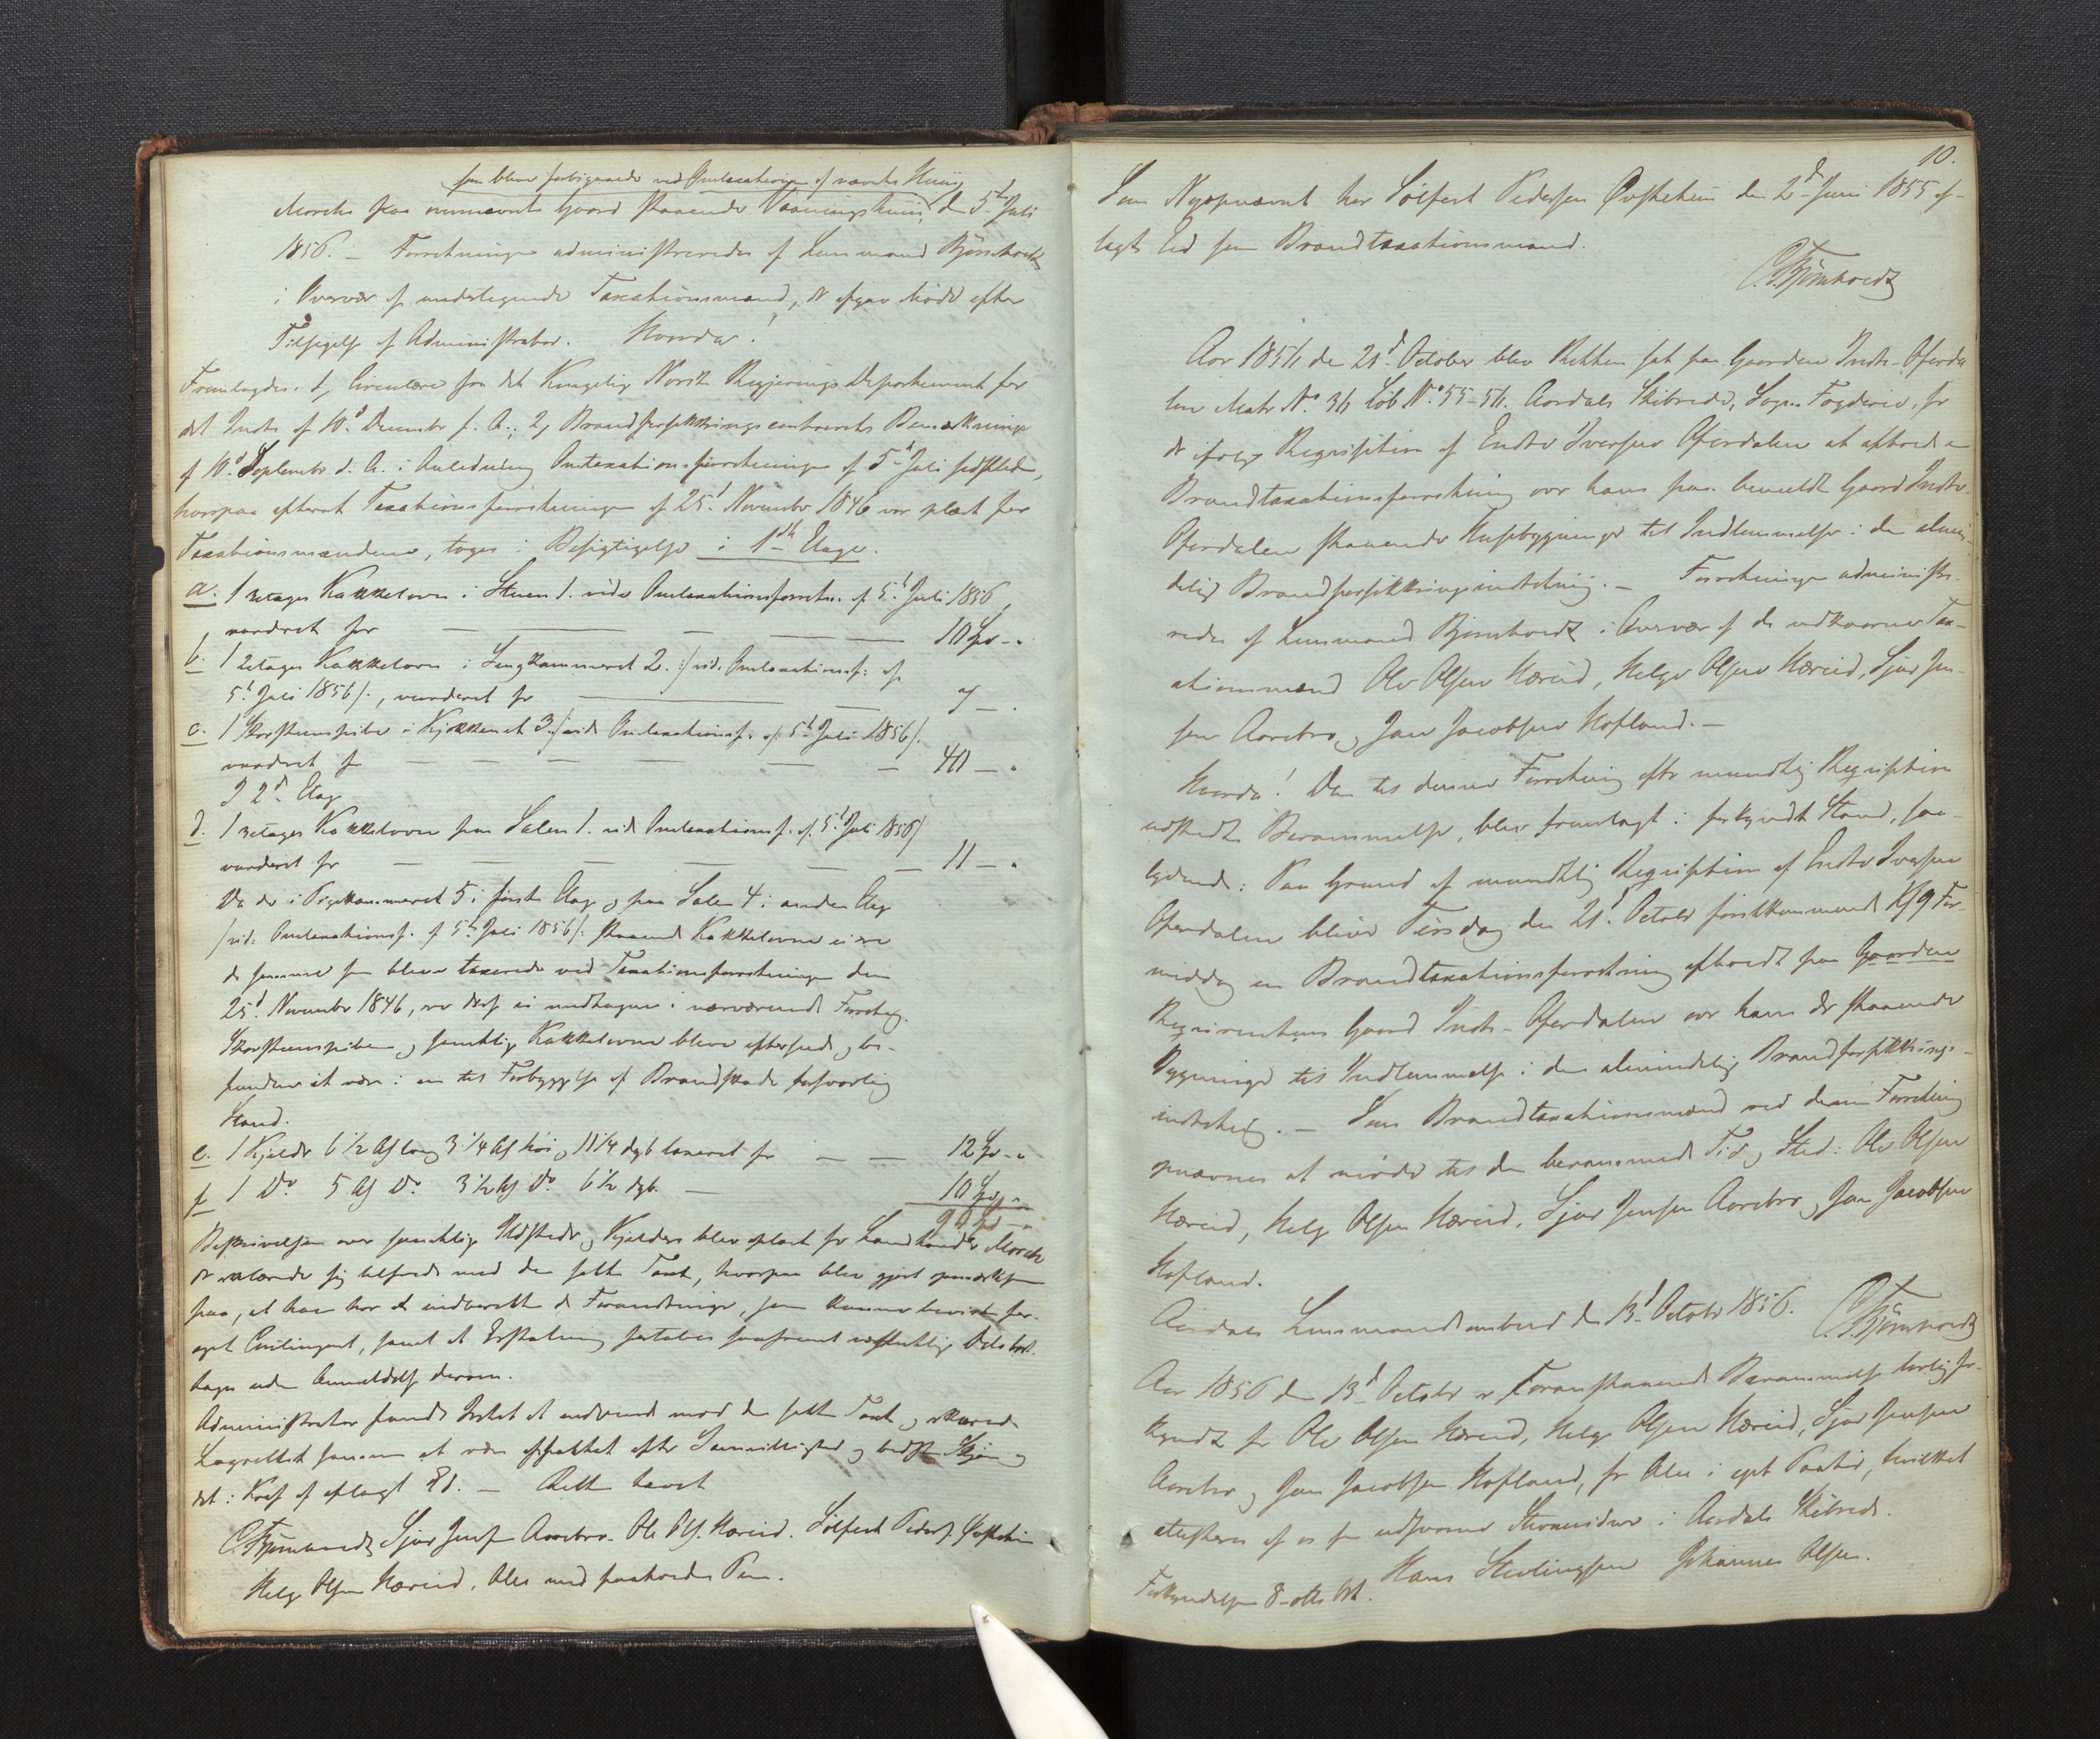 som bleve forbigaaede ved Omtaxationen af nævnte Huus
Morchs paa ommeldte Gaard staaende Vaaningshuus, den 5te Juli
1856. — Forretningen administreredes af Lensmand Björnhoedt
i Overvær af undertegnede Taxationsmænd, der afgav Møde efter
Tilsigelse af Administrator. Hvorda!
Fremlagdes: 1, Circulære fra det Kongelig Norske Regjerings Departement for
det Indre af 10d December f. A.; 2, Brandforsikkringscontoirets Bemærkninger
af 10d September d. A. i Anledning Omtaxationsforretningen af 5te Juli sidstleden,
hvorpaa efterat Taxationsforretningen af 25d November 1846 var oplæst for
Taxationsmændene, toges i Besigtigelse i 1ste Etage.
a. 1 3etages Kakkelovn i Stuen 1. vide Omtaxationsforretn. af 5te Juli 1856,
vurderet for — — — — 10 Spd - "
b. 1 2etages Kakkelovn i Sengkammeret 2. /: vid. Omtaxationsf. af
5te Juli 1856 /., vurderet for — — 7 — "
c. 1 Skorsteenspibe i Kjøkkenet 3 /: vide Omtaxationsf. af 5te Juli 1856 /.
vurderet for — — — — — — 40 — "
I 2d Etage
d. 1 3etages Kakkelovn paa Salen 1. vide Omtaxationsf. af 5te Juli 1856 /
vurderet for — — — — — 11 — "
Da de i Pigekammeret 5 i første Etage og paa Salen 4 i anden Etage
/ vid: Omtaxationsf. af 5te Juli 1856 /: staaende Kakkelovne ere
de samme som bleve taxerede ved Taxationsforretningen den
25d November 1846, ere de ei medtagne i nærværende Forretng.
Skorsteenspiben og samtlige Kakkelovne bleve efterseede og be-
fundne at være i en til Forbyggelse af Brandskade forsvarlig
Stand.
e. 1 Kjelder 6 1/2 Al lang 3 1/4 Al høi og 11 1/4 dyb taxeret for — — 12 Spd - "
f. 1 Do 5 Al Do 3 1/2 Al Do 6 1/2 dyb. — 10 Spd - "
90 Spd - "
Beskrivelsen over samtlige Ildsteder og Kjeldere blev oplæst for Landhandler Morch
der erklærede sig tilfreds med den satte Taxt, hvorpaa blev gjort opmærksom
paa, at han har at indberette de Forandringer, som kunne bevirke for-
øget Contingent, samt at Erstatning fortabes saafremt væsentlige Dele bort-
tages uden Anmeldelse derom.
Administrator fandt Intet at erindre mod den satte Taxt og erklærede
Laugrettet samme at være affattet efter Samvittighed og bedste Skjøn og
det i Kraft af aflagt Ed. — Retten hævet
C. Björnhoedt, Sjur Jensen Aarebro. Ole Ols. Hæreid. Sölfest Peders. Qvistheim
Helge Olsen Hæreid, Alle med paaholden Pen.
10.
Som Nyopnævnt har Sölfest Pedersen Qvistheim den 2d Juni 1855 af-
lagt Ed som Brandtaxationsmand.
C. Björnhoedt
Aar 1856 den 21d October blev Retten sat paa Gaarden Indre-Oferda-
len Matr No 36 Löb No 55-56. Aardals Skibrede, Sogns Fogderie, for
der ifølge Requisition af Endre Iversen Oferdalen at afholde en
Brandtaxationsforretning over hans paa bemeldte Gaard Indre-
Oferdalen staaende Huusbygninger til Indlemmelse i den almin-
delige Brandforsikkringsindretning. — Forretningen administre-
redes af Lensmand Björnhoedt i Overvær af de udkaarne Tax-
ationsmænd Ole Olsen Hæreid, Helge Olsen Hæreid, Sjur Jen-
sen Aarebro, og Jan Jacobsen Hofland. —
Hvorda! Den til denne Forretning efter mundtlig Requisition
udstedte Berammelse, blev fremlagt i forkyndt Stand, saa-
lydende: Paa Grund af mundtlig Requisition af Endre Iversen
Oferdalen bliver Tirsdag den 21d October førstkommende Kl 9 For-
middag en Brandtaxationsforretning afholdt paa Gaarden
Requirentens Gaard Indre-Oferdalen over hans der staaende
Bygninger til Indlemmelse i den almindelige Brandforsikkrings-
indretning. — Som Brandtaxationsmænd ved denne Forretning
opnævnes at møde til den berammede Tid og Sted: Ole Olsen
Hæreid, Helge Olsen Hæreid, Sjur Jensen Aarebro og Jan Jacobsen
Hofland.
Aardals Lensmandsembed den 13d October 1856. C. Björnhoedt
Aar 1856 den 13d October er Foranstaaende Berammelse lovlig for-
kyndt for Ole Olsen Hæreid, Helge Olsen Hæreid, Sjur Jensen
Aarebro og Jan Jacobsen Hofland, for Alle i eget Paahør, hvilket
attesteres af os som edsvorne Stevnevidner i Aardals Skibrede.
Forkyndelsen 8 - otte Ort. Hans Sterlingsen Johannes Olsen.